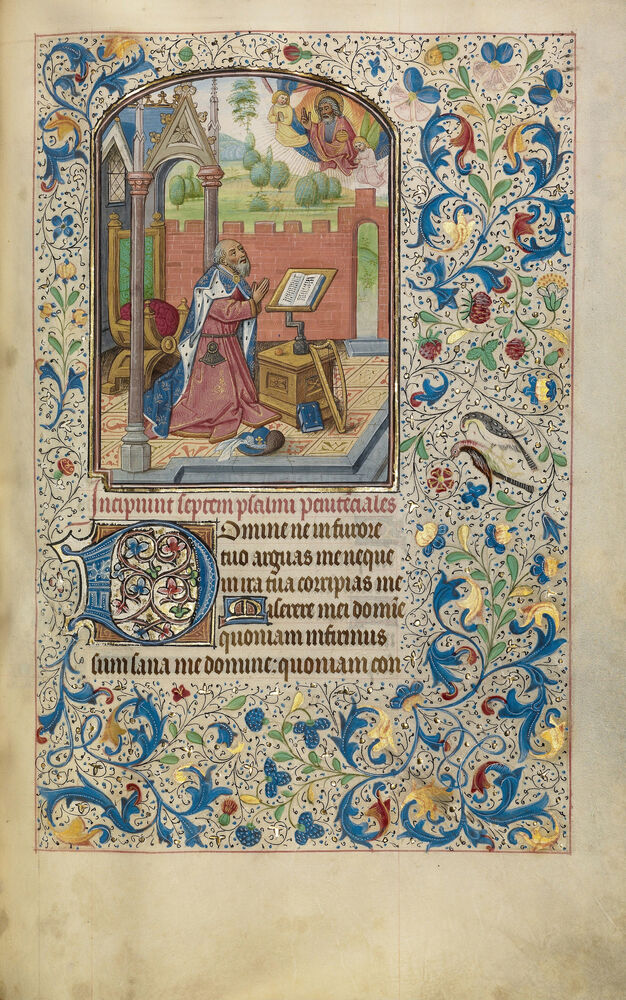 Incipiunt septem psalmi penite͞ciales
Domine ne in furore
tuo arguas me neque
in ira tua corripias me
Miserere mei domi͞e
quoniam infirmus
sum sana me domine: quoniam con